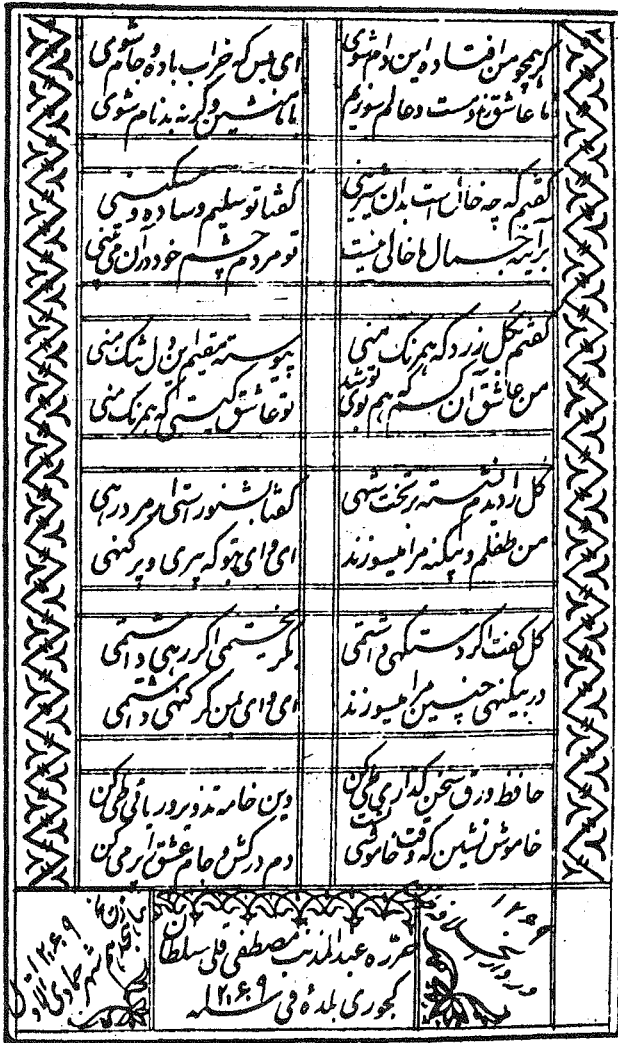 گر همچو من افتاده این دام شوی
ای بس که خراب باده و جام شوی
ما عاشق و رند و مست و عالم سوزیم
با ما منشین و گرنه بدنام شوی
گفتم که چه خالست بدان شیرینی
گفتا تو سلیم و ساده و مسکینی
بر آینه جمال ما خالی نیست
تو مردم چشم خود در آن می بینی
گفتم بگل زرد که همرنک منی
پیوسته مقیم این دل تنک منی
من عاشق آن کسم که هم بوی تو شد
تو عاشق کیستی که همرنک منی
گل را دیدم نشسته بر تخت شهی
گفتا بشنو راستی از مرد رهی
من طفلم و بیگنه مرا میسوزند
ای وای بتو که پیری و پر گنهی
گل گفت اگر دستگهی داشتمی
بگریختمی اگر رهی داشتمی
در بیگنهی چنین مرا میسوزند
ای وای بمن گر گنهی داشتمی
حافظ ورق سخن گذاری طی کن
وین خامه تزویر و ریائی طی کن
خاموش نشین که وقت خاموشی تست
دم درکش و جام عشق را پر می کن
حرره عبد المذنب مصطفی قلی سلطان
کجوری بلدهٔ فی سنه ۱۲۰۶۹
شهر جمادی الاول